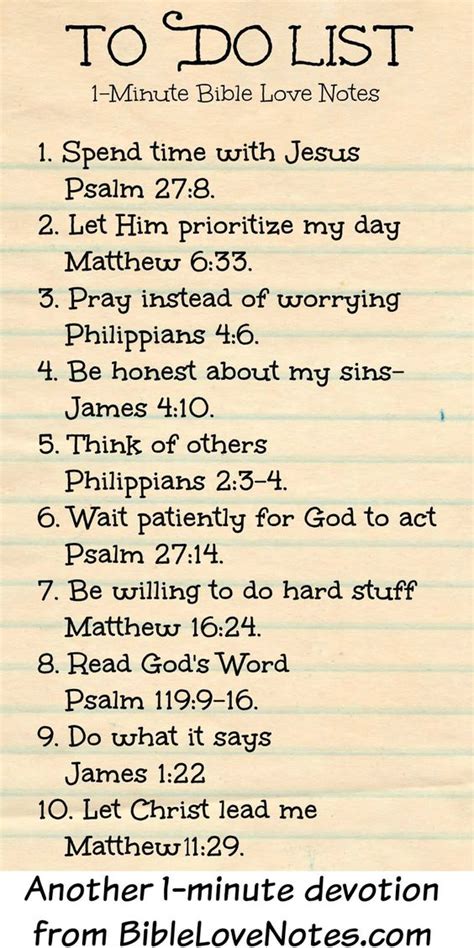 TO DO LIST
1-Minute Bible Love Notes
1. Spend time with Jesus
Psalm 27:8.
2. Let Him prioritize my day
Matthew 6:33.
3. Pray instead of worrying
Philippians 4:6.
4. Be honest about my sins-
James 4:10.
5. Think of others
Philippians 2:3-4.
6. Wait patiently for God to act
Psalm 27:14.
7. Be willing to do hard stuff
Matthew 16:24.
8. Read God's Word
Psalm 119:9-16.
9. Do what it says
James 1:22
10. Let Christ lead me
Matthew11:29.
Another 1-minute devotion
from BibleLoveNotes.com